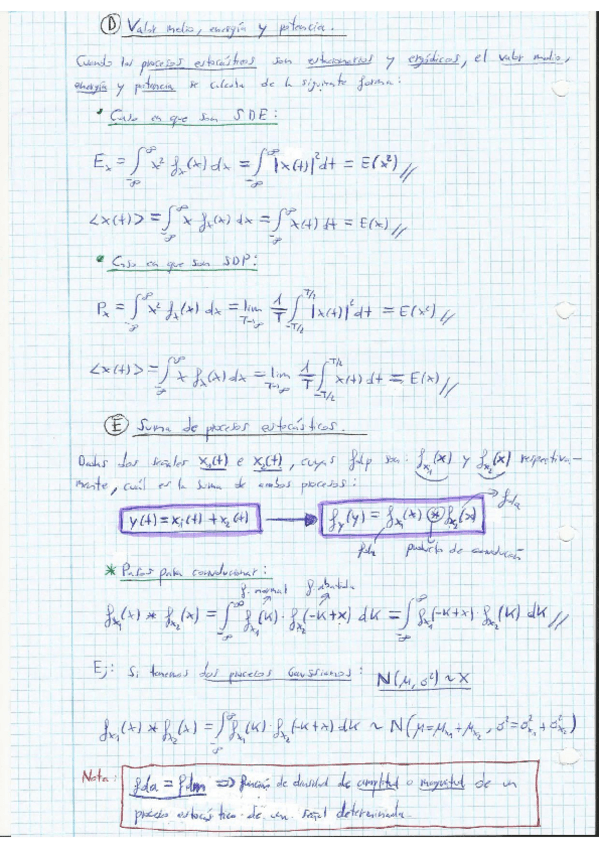 D Valor medio, energía y potencia.
Cuando los procesos estocásticos son estacionarios y ergódicos, el valor medio,
energía y potencia se calcula de la siguiente forma:
• Caso en que son SDE:
Ex = ∫_{-∞}^{∞} x² fx(x) dx = ∫_{-∞}^{∞} |x(t)|² dt = E(x²) //
<x(t)> = ∫_{-∞}^{∞} x fx(x) dx = ∫_{-∞}^{∞} x(t) dt = E(x) //
• Caso en que son SDP:
Px = ∫_{-∞}^{∞} x² fx(x) dx = lim_{T→∞} 1/T ∫_{-T/2}^{T/2} |x(t)|² dt = E(x²) //
<x(t)> = ∫_{-∞}^{∞} x fx(x) dx = lim_{T→∞} 1/T ∫_{-T/2}^{T/2} x(t) dt = E(x) //
E Suma de procesos estocásticos.
Dadas dos señales x₁(t) e x₂(t), cuyas fdp son: fx₁(x) y fx₂(x) respectiva-
mente, cuál es la suma de ambos procesos:
y(t) = x₁(t) + x₂(t) → fy(y) = fx₁(x) * fx₂(x) → fda
fda producto de convolución
* Pasos para convolucionar:
f. normal f. abatida
fx₁(x) * fx₂(x) = ∫_{-∞}^{∞} fx₁(k) · fx₂(-k+x) dk = ∫_{-∞}^{∞} fx₁(-k+x) fx₂(k) dk //
Ej: Si tenemos dos procesos Gaussianos: N(μ, σ²) ~ x
fx₁(x) * fx₂(x) = ∫_{-∞}^{∞} fx₁(k) · fx₂(-k+x) dk ~ N(μ=μx₁+μx₂, σ²=σ²x₁+σ²x₂)
Nota: fda = fdm ⇒ función de densidad de amplitud o magnitud de un
proceso estocástico de un señal determinada.